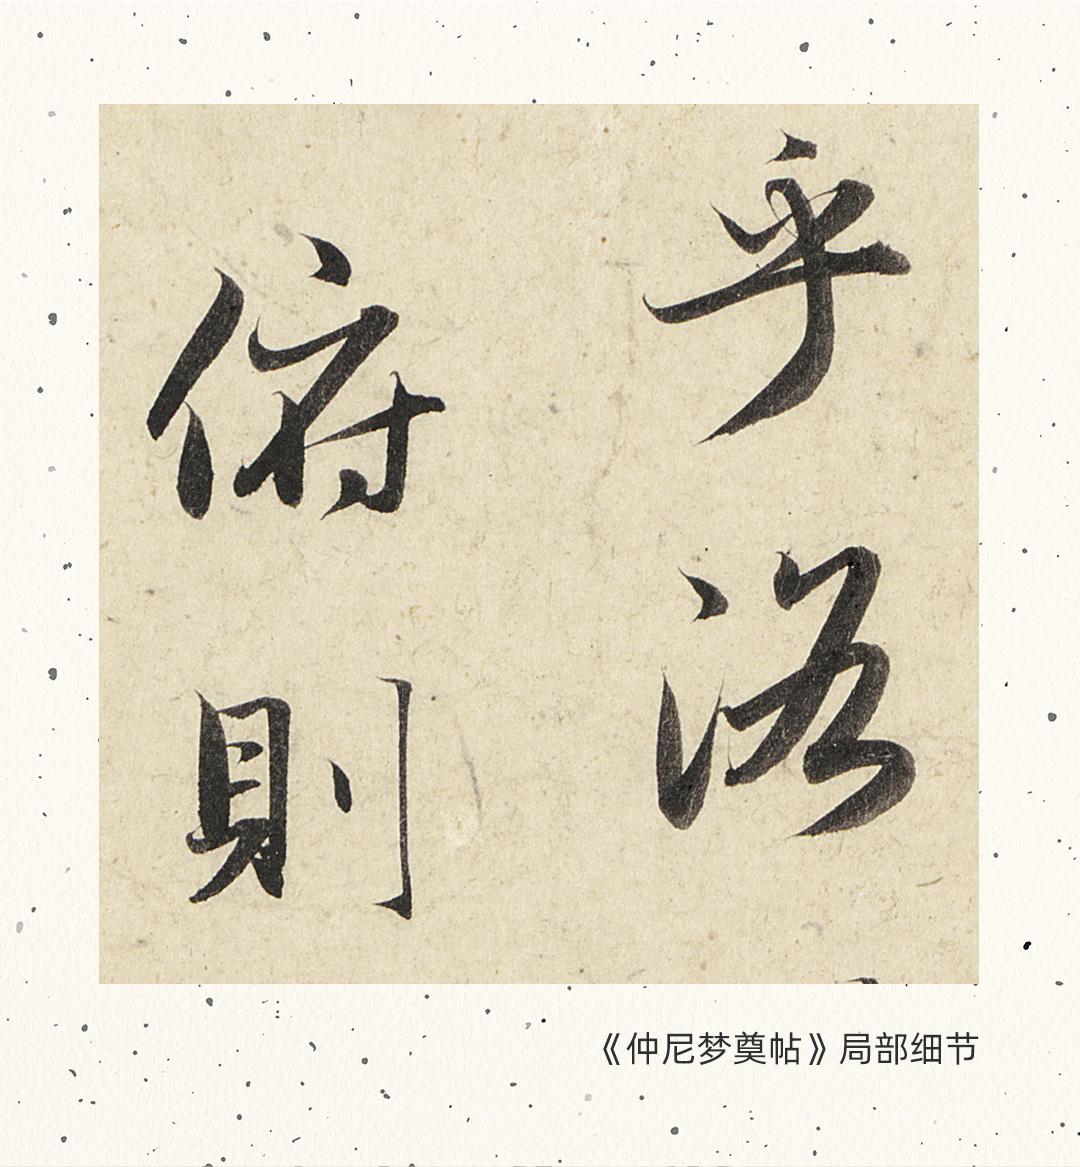 乎
俯則
《仲尼梦奠帖》局部细节